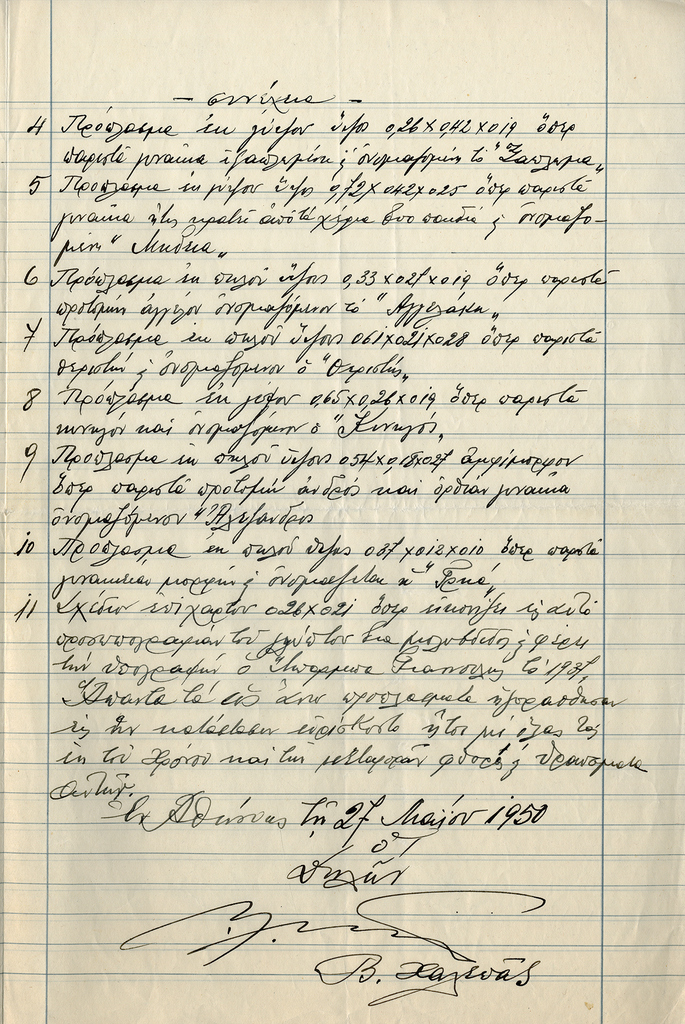 — συνέχεια —
4 Πρόπλασμα ἐκ γύψου ὕψος 0,26 X 0,42 X 019 ὅπερ
παριστᾶ γυναῖκα ἐξαπλωμένη & ὀνομαζομένη τὸ "Ξάπλωμα„
5 Πρόπλασμα ἐκ γύψου ὕψος 0,72 X 042 X 025 ὅπερ παριστᾶ
γυναῖκα ἥτις κρατεῖ ἀπὸ τὰ χέρια δυο παιδιά & ὀνομαζο-
μένη "Μήδεια„
6 Πρόπλασμα ἐκ πηλοῦ ὕψους 0,33 X 027 X 019 ὅπερ παριστᾶ
προτομὴν ἀγγέλου ὀνομαζόμενον τὸ "Ἀγγελάκι„
7 Πρόπλασμα ἐκ πηλοῦ ὕψους 061 X 021 X 028 ὅπερ παριστᾶ
θεριστὴν & ὀνομαζόμενον ὁ "Θεριστής„
8 Πρόπλασμα ἐκ γύψου 0,65 X 0,26 X 019 ὅπερ παριστᾶ
κυνηγόν καὶ ὀνομαζόμενον ὁ "Κυνηγός„
9 Πρόπλασμα ἐκ πηλοῦ ὕψους 054 X 0,18 X 027 ἀμφίμορφον
ὅπερ παριστᾶ προτομὴν ἀνδρός καὶ ὀρθίαν γυναῖκα
ὀνομαζόμενον "Ἀλέξανδρος
10 Πρόπλασμα ἐκ πηλοῦ ὕψος 037 X 012 X 010 ὅπερ παριστᾶ
γυναικείαν μορφήν & ὀνομάζεται ἡ
11 Σχέδιον ἐπὶ χάρτου 026 X 021 ὅπερ εἰκονίζει εἰς αὐτὸ
προσωπογραφίαν τοῦ γλύπτου δια μολυβδίδος & φέρει
τὴν ὑπογραφήν ὁ Μπάρμπα Γιαννούλης τὸ 1937,
Ἅπαντα τὰ ὡς ἄνω προπλάσματα ἠγοράσθησαν
εἰς ἣν κατάστασιν εὑρίσκοντο ἤτοι μὲ ὅλας τὰς
ἐκ τοῦ χρόνου καὶ τὴν μεταφορὰν φθορές & θραύσματα
αὐτῶν.
Ἐν Ἀθήναις τῇ 27 Μαΐου 1950
ὁ
Πωλῶν
Β. Χαλεπᾶς